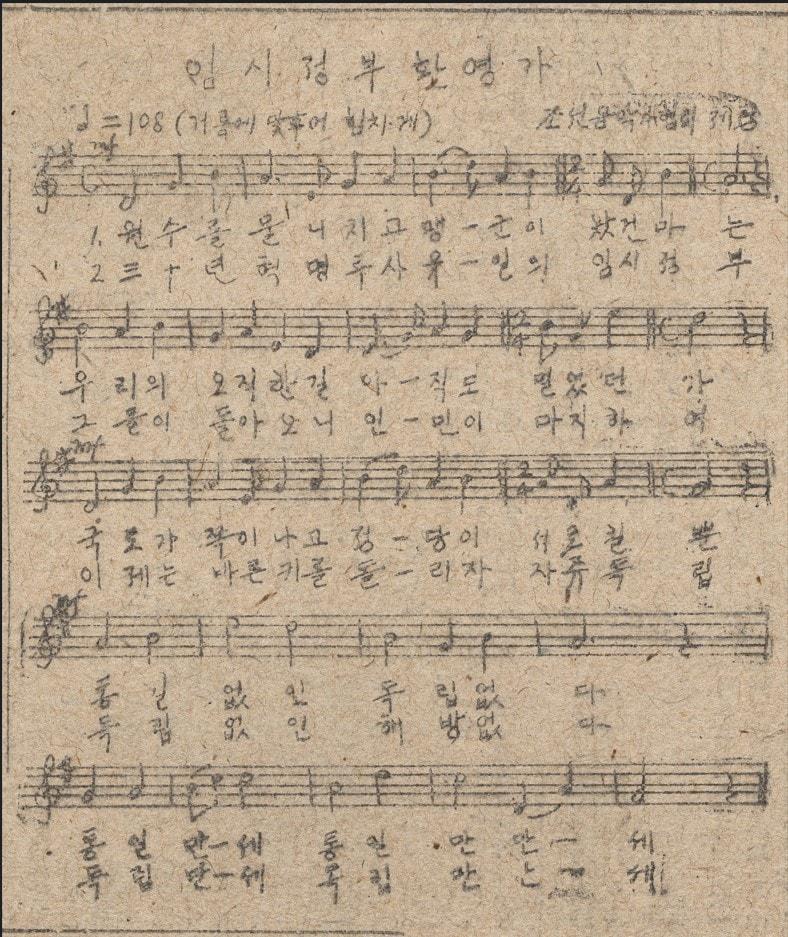 임시정부환영가
♩=108 (거름에 맞추어 힘차게)
1. 원수를 물니치고 맹-군이 왔건마는
2 三十년 혁명투사 유-일의 임시정부
우리의 오직한길 아-직도 멀었던가
그들이 돌아오니 인-민이 마지하여
국토가 짝이나고 정-당이 서로
이제는 바른키를 돌-리자 자주독립
통일없인 독립없다
독립없인 해방없다
통일만-세 통일만만-세
독립만-세 독립만 세